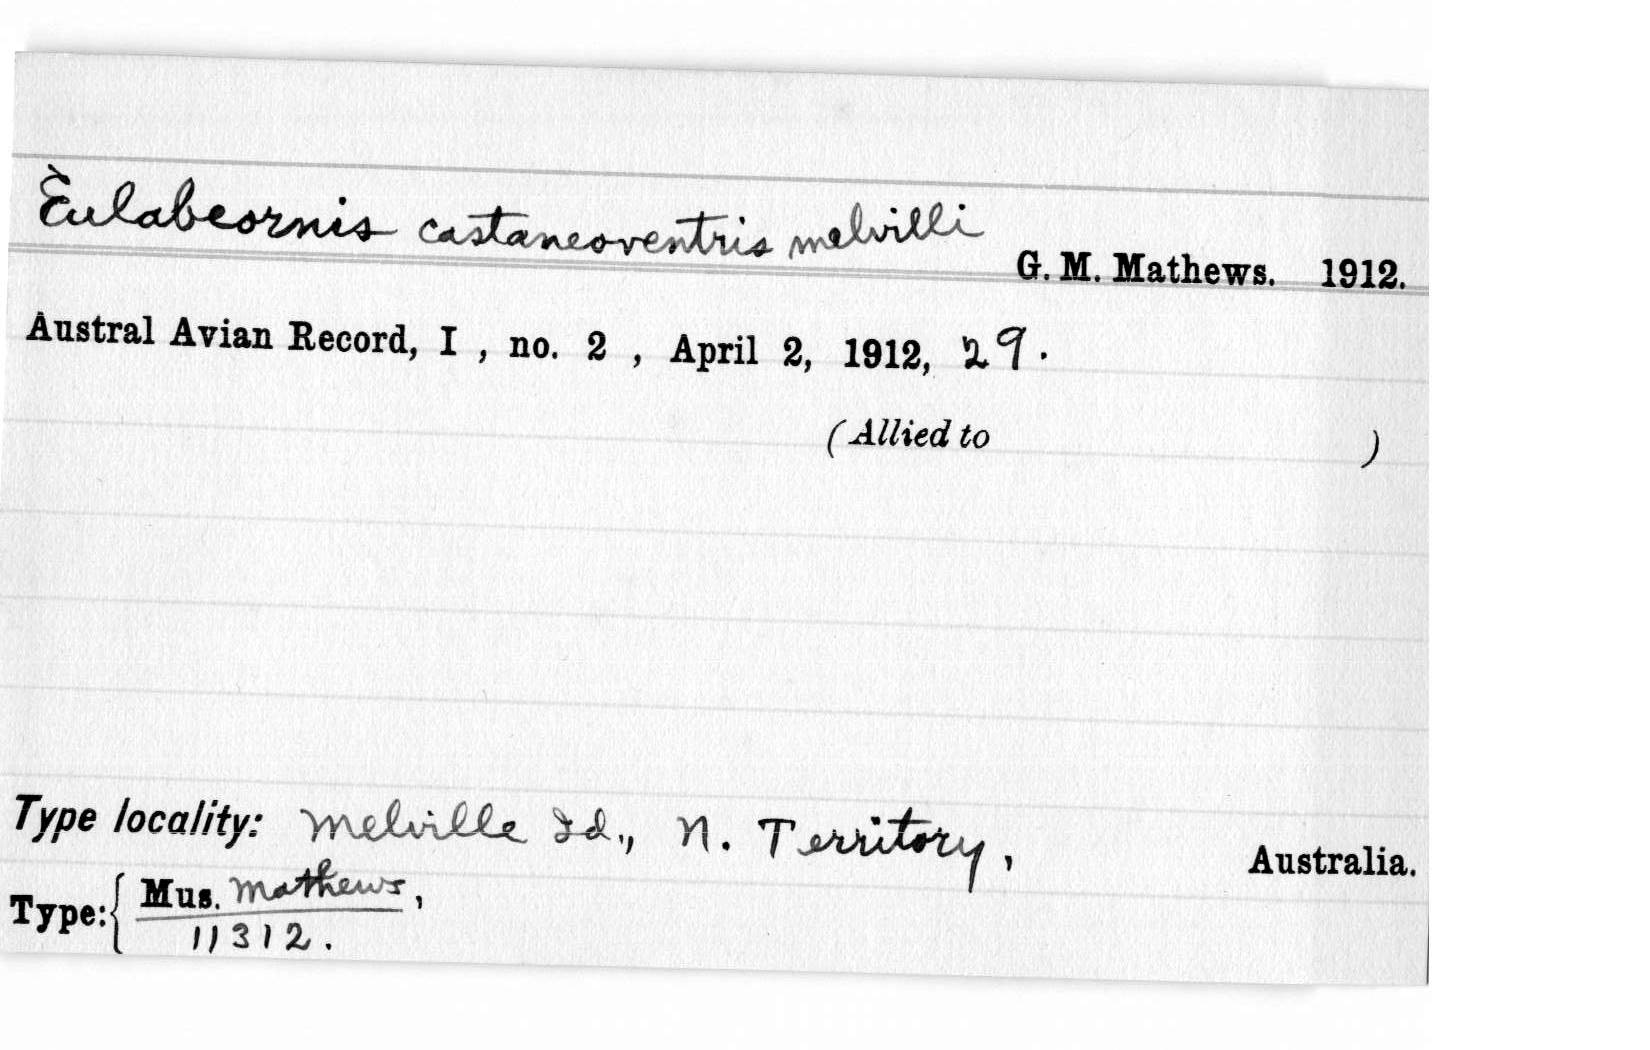 Eulabeornis castaneoventris melvilli G. M. Mathews. 1912.
Austral Avian Record, I , no. 2 , April 2, 1912, 29.
(Allied to )
Type locality: Melville Id., N. Territory, Australia.
Type: { Mus. Mathews,
11312.